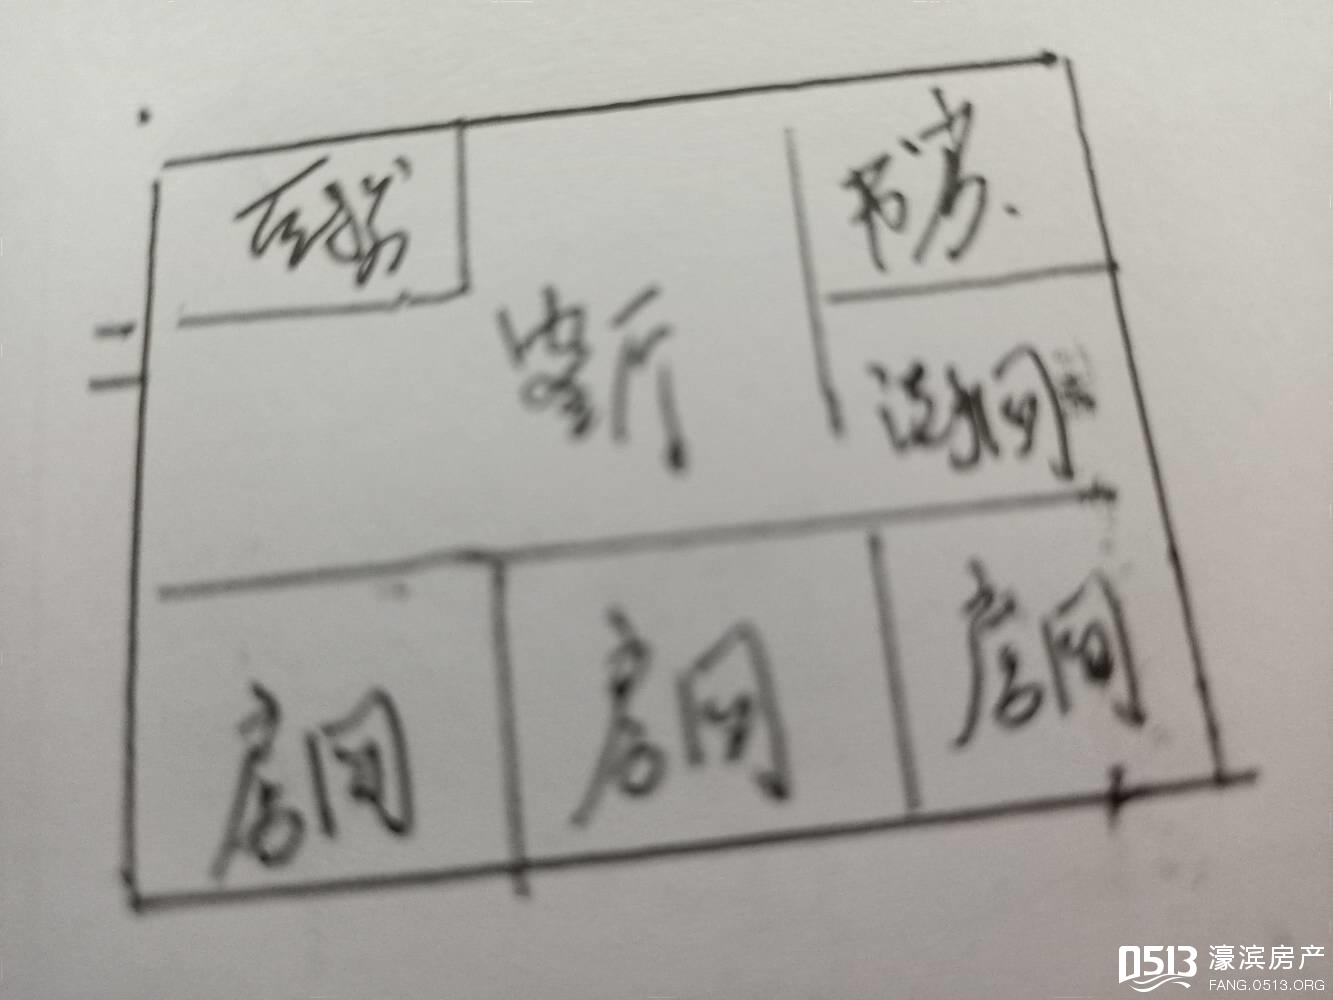 书房
客厅
洗澡间
房间
房间
房间
0513 濠滨房产
FANG.0513.ORG